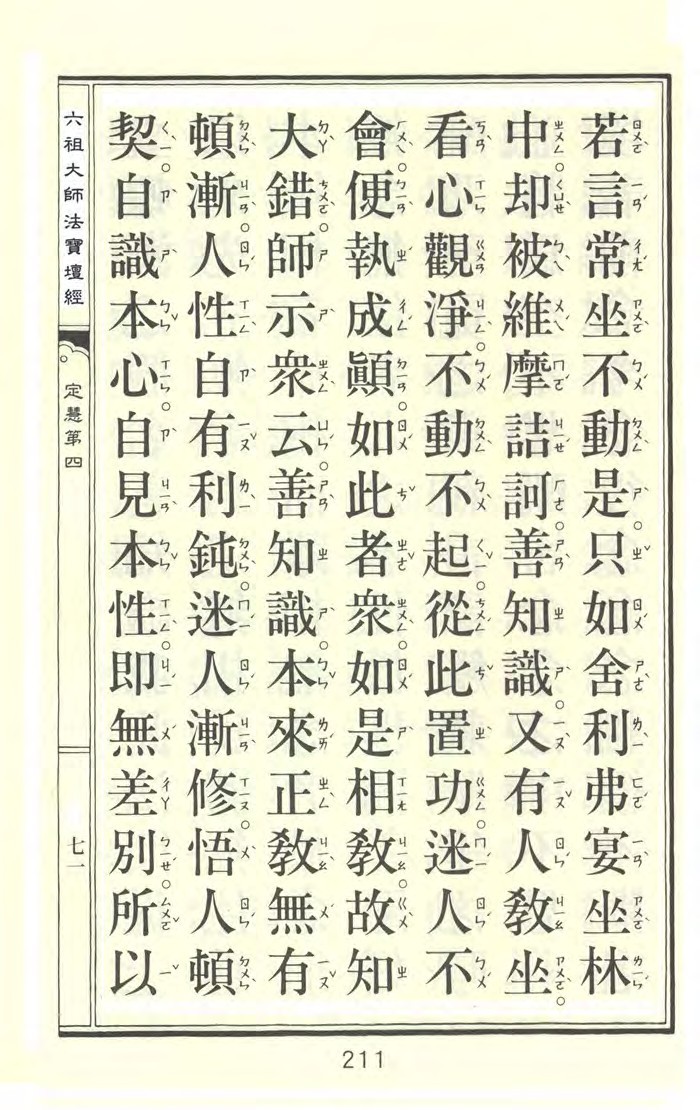 若言常坐不動是。只如舍利弗宴坐林
中。却被維摩詰訶。善知識。又有人教坐。
看心觀淨。不動不起。從此置功。迷人不
會。便執成顚。如此者衆。如是相教。故知
大錯。師示衆云。善知識。本來正教。無有
頓漸。人性自有利鈍。迷人漸修。悟人頓
契。自識本心。自見本性。即無差別。所以
六祖大師法寶壇經
定慧第四
七一
211